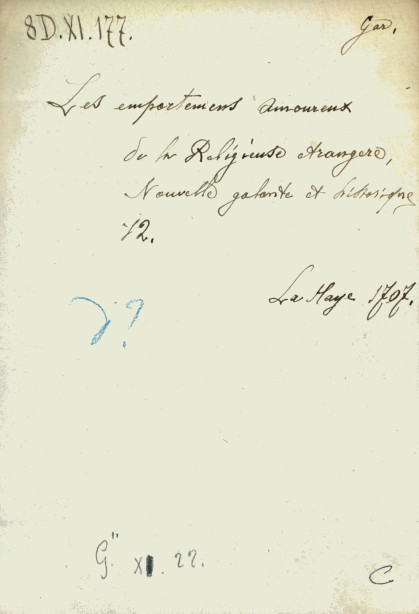 8D.XI.177.
Gar.
Les emportemens amoureux
de la Religieuse etrangere,
Nouvelle galante et historique
12.
La Haye 1707.
?
G" XI. 22.
C